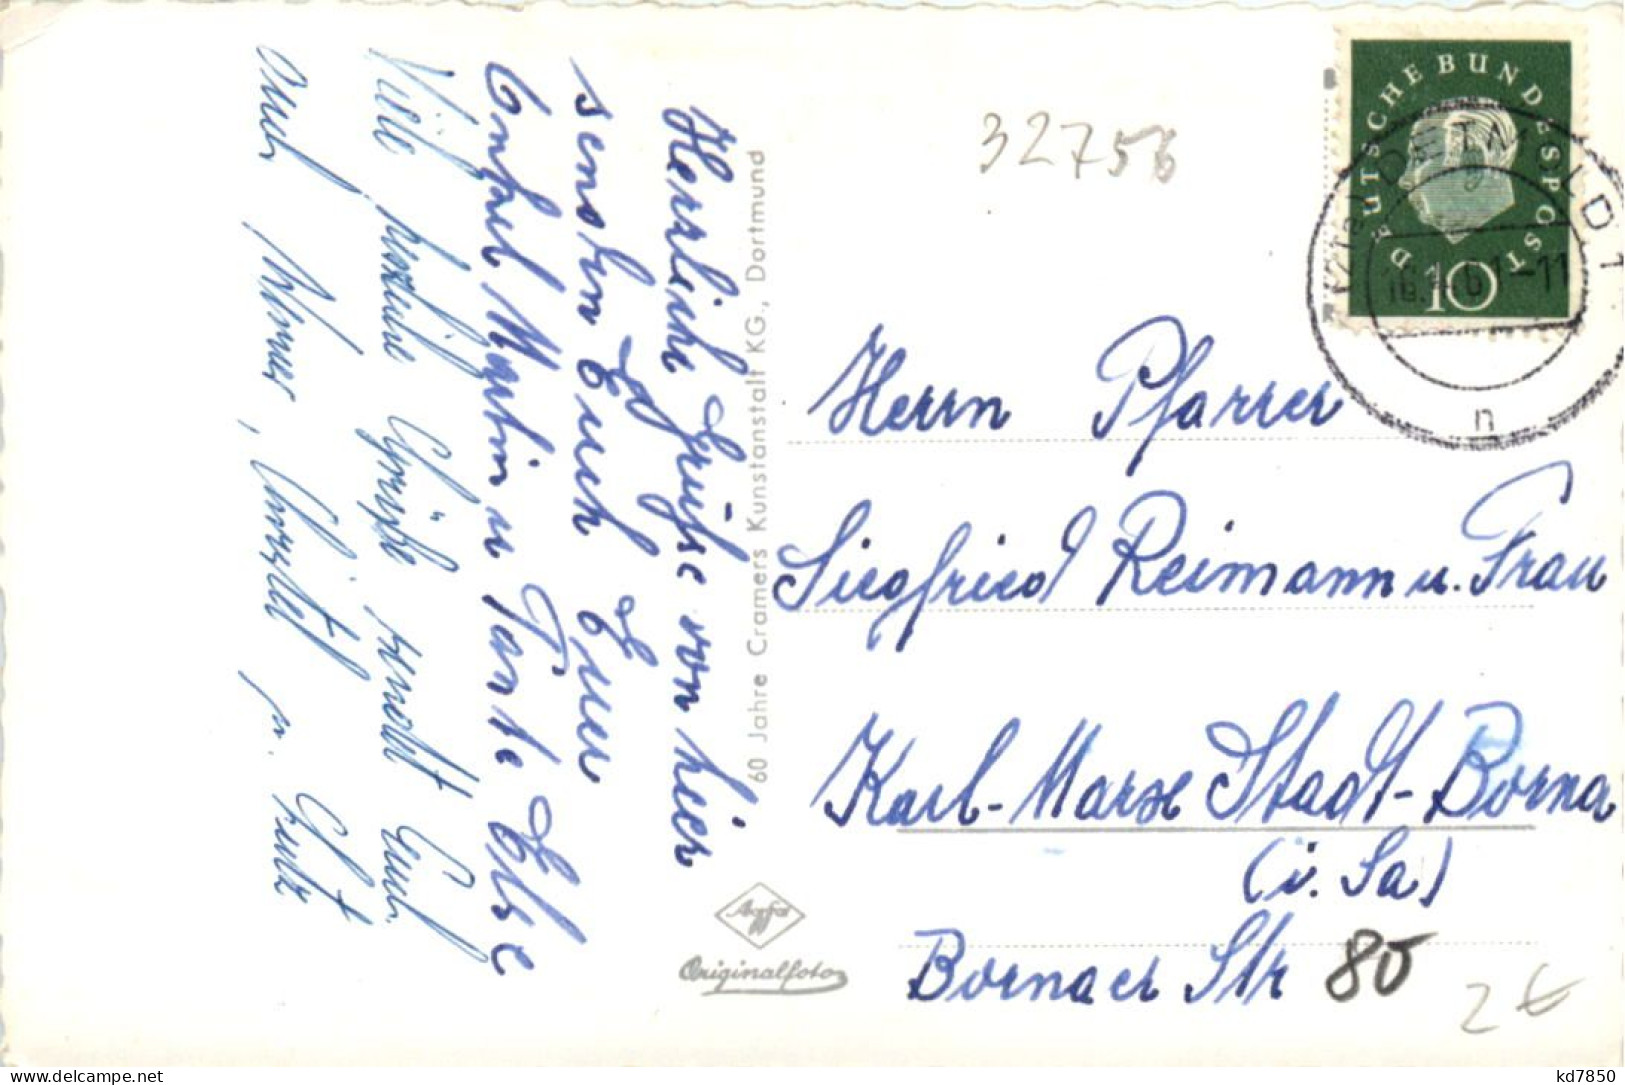 Herrliche Grüße von hier
senden Euch Euer
Onkel Martin u Tante Else
Viele herzliche Grüße sendet Euch
auch Werner, Christel u.
60 Jahre Cramers Kunstanstalt KG., Dortmund
Agfa
Originalfoto
32756
DEUTSCHE BUNDESPOST
10
DETMOLD 1
-11
n
Herrn Pfarrer
Siegfried Reimann u. Frau
Karl-Marx Stadt-Borna
(i. Sa)
Bornaer Str 80
2 €
kd7850